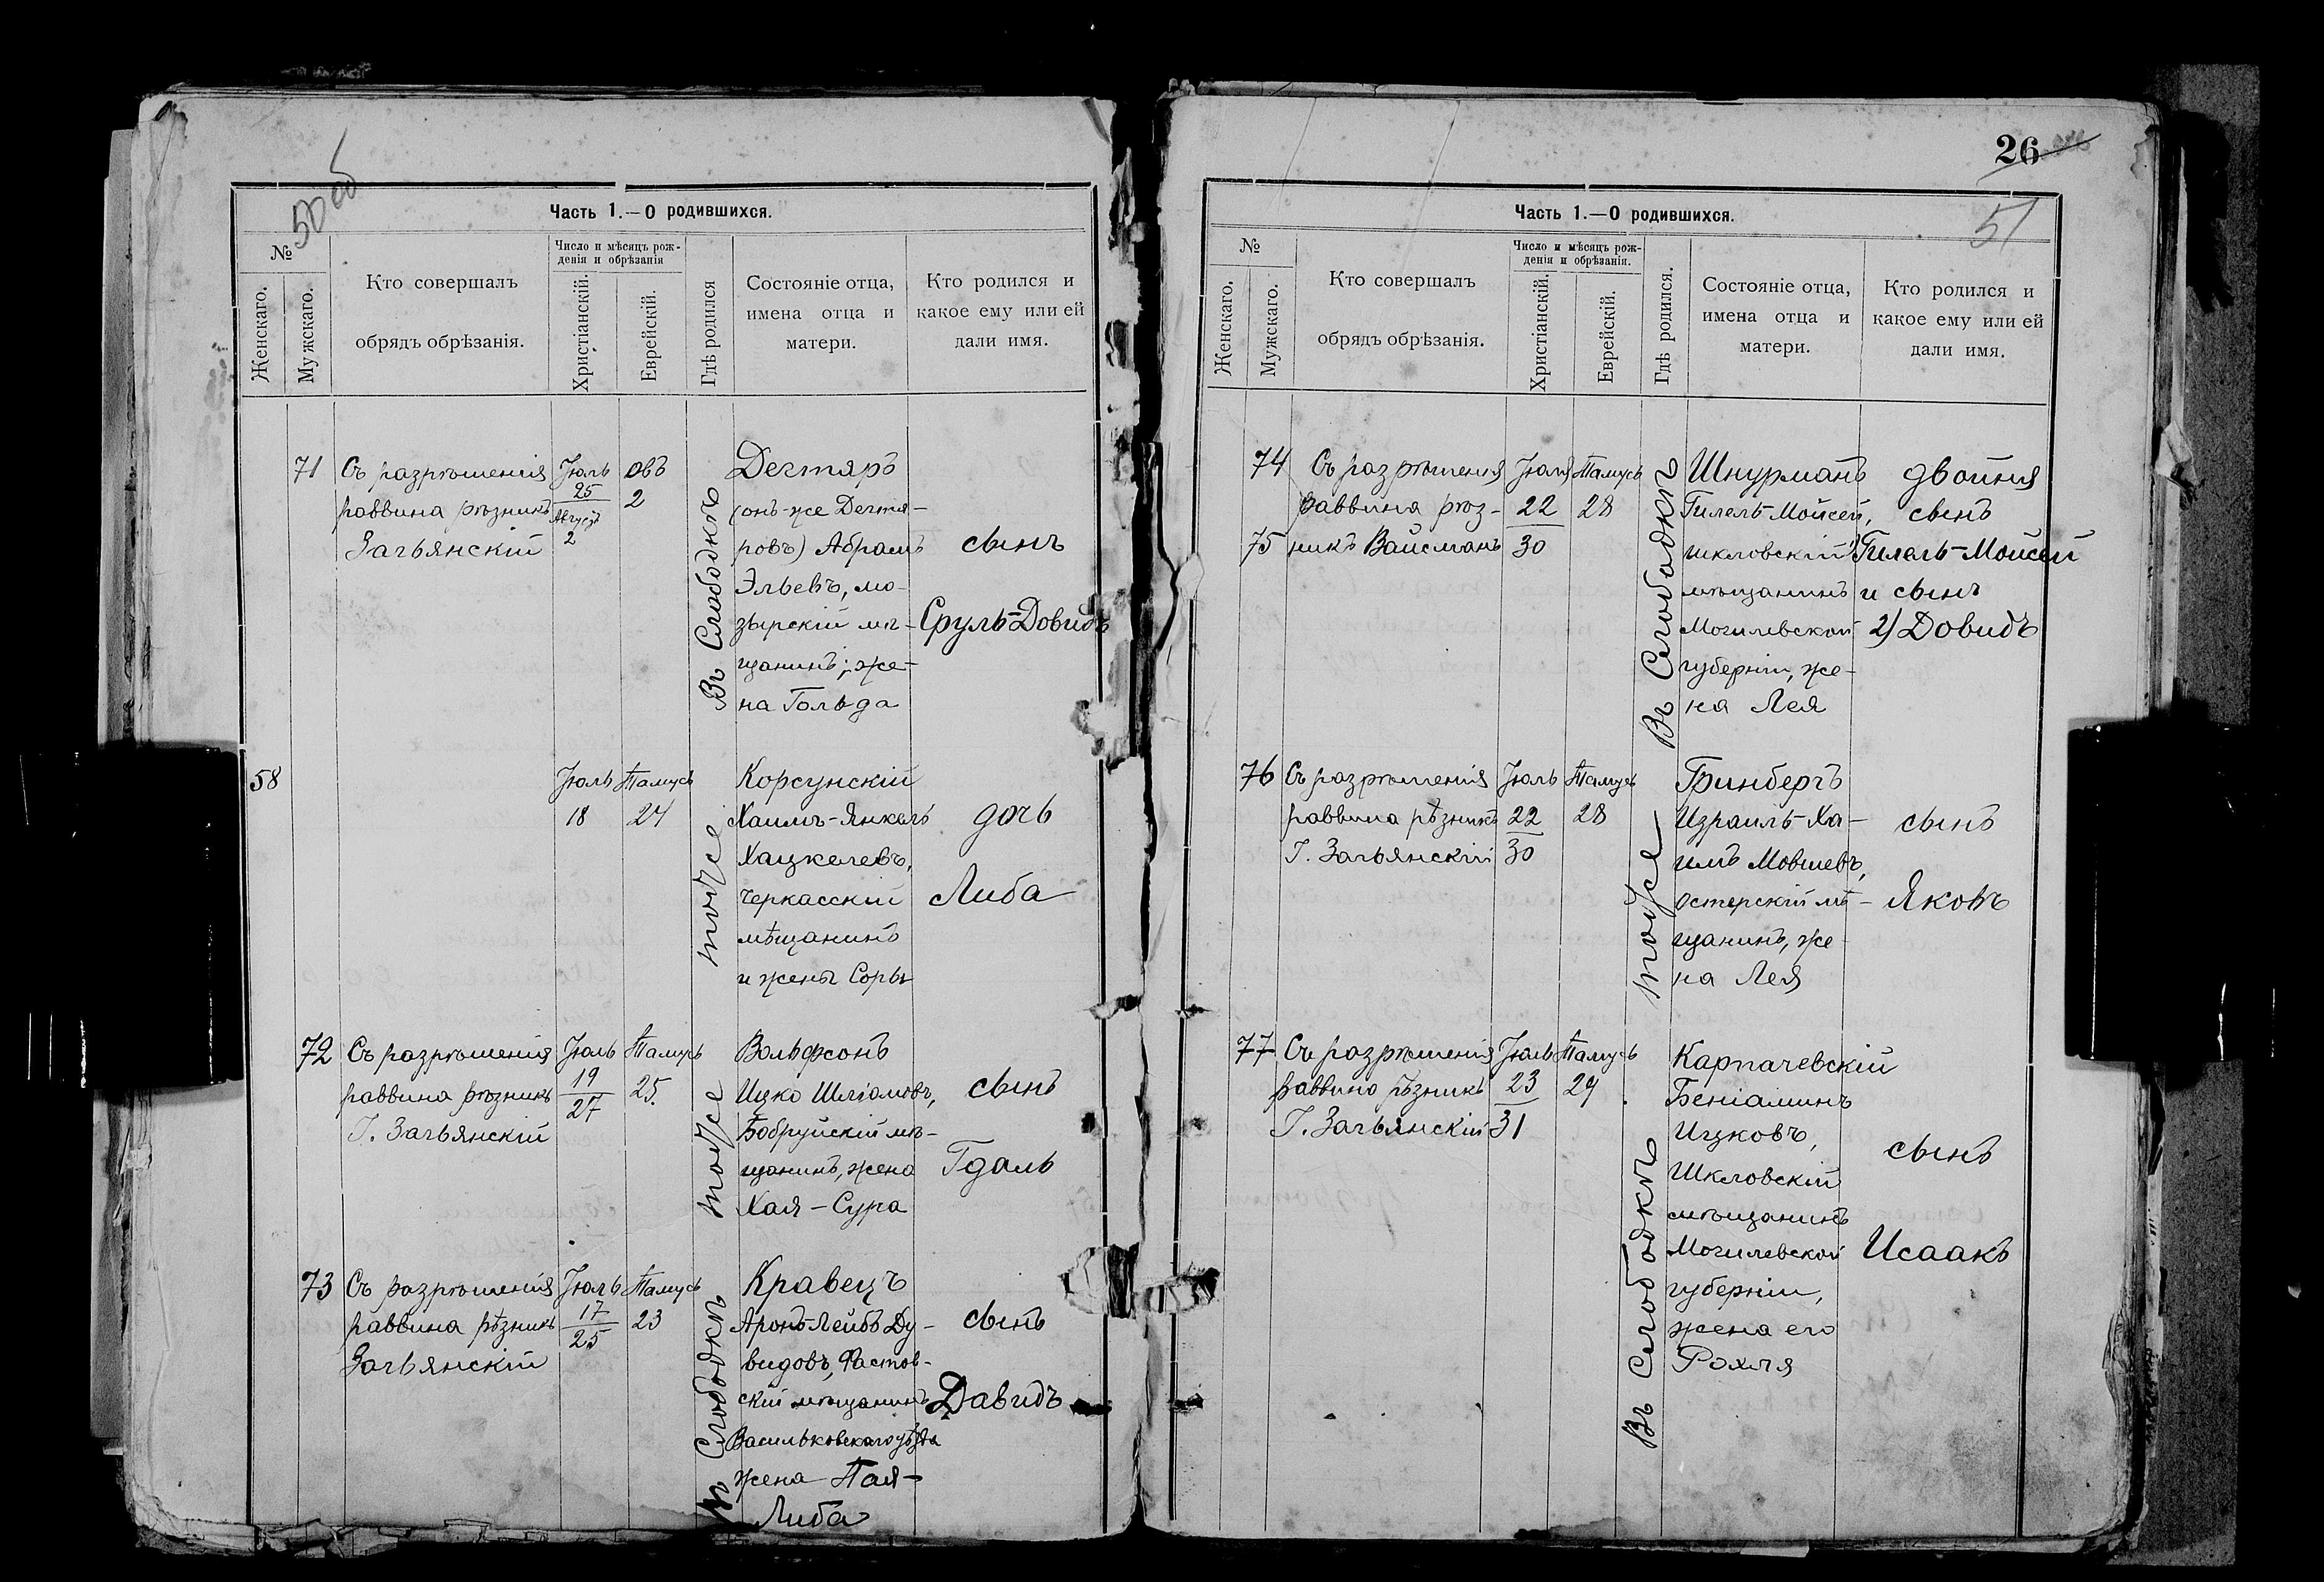 50 об
Часть 1.—О родившихся.
№
Женскаго.
Мужскаго.
Кто совершалъ
обрядъ обрѣзанія.
Число и мѣсяцъ рож-
денія и обрѣзанія
Христіанскій.
Еврейскій.
Гдѣ родился
Состояніе отца,
имена отца и
матери.
Кто родился и
какое ему или ей
дали имя.
71
Съ разрѣшенія
раввина рѣзникъ
Загъянскій
Іюль
25
Августъ
2
овъ
2
Въ Слободкѣ
Дегтяръ
(онъ-же Дегтя-
ровъ) Абрамъ
Эльевъ, мо-
зырскій мѣ-
щанинъ; же-
на Гольда
сынъ
Сруль-Довидъ
58
Іюль
18
Тамузъ
24
тоже
Корсунскій
Хаимъ-Янкель
Хацкелевъ,
черкасскій
мѣщанинъ
и жены Соры
дочь
Либа
72
Съ разрѣшенія
раввина рѣзникъ
Г. Загъянскій
Іюль
19
27
Тамузъ
25.
тоже
Вольфсонъ
Ицко Шліомовъ,
Бобруйскій мѣ-
щанинъ, жена
Хая-Сура
сынъ
Гдаль
73
Съ разрѣшенія
раввина рѣзникъ
Загъянскій
Іюль
17
25
Тамузъ
23
Въ Слободкѣ
Кравецъ
Аронъ-Лейбъ Ду-
видовъ, Фастов-
скій мѣщанинъ
Васильковскаго уѣзда
жена Пая-
Либа
сынъ
Давидъ
26
51
Часть 1.—О родившихся.
№
Женскаго.
Мужскаго.
Кто совершалъ
обрядъ обрѣзанія.
Число и мѣсяцъ рож-
денія и обрѣзанія.
Христіанскій.
Еврейскій.
Гдѣ родился.
Состояніе отца,
имена отца и
матери.
Кто родился и
какое ему или ей
дали имя.
74
75
Съ разрѣшенія
раввина рѣз-
никъ Вайсманъ
Іюля
22
30
Тамузъ
28
Въ Слободкѣ
Шнурманъ
Гилель-Мойсей,
шкловскій
мѣщанинъ
Могилевской
губерніи, же-
на Лея
двойня
сынъ
1) Гилель-Мойсей
и сынъ
2) Довидъ
76
Съ разрѣшенія
раввина рѣзникъ
Г. Загъянскій
Іюль
22
30
Тамузъ
28
тоже
Гринбергъ
Израиль-Ха-
имъ Мовшевъ,
остерскій мѣ-
щанинъ, же-
на Лея
сынъ
Яковъ
77
Съ разрѣшенія
раввина рѣзникъ
Г. Загъянскій
Іюль
23
31
Тамузъ
29
Въ Слободкѣ
Карпачевскій
Беніаминъ
Ицковъ,
Шкловскій
мѣщанинъ
Могилевской
губерніи,
жена его
Рохля
сынъ
Исаакъ